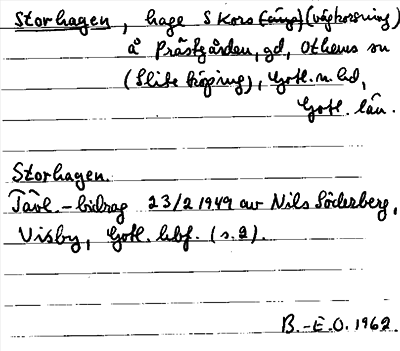 Storhagen, hage S Kors (äng) (vägkorsning)
å Prästgården, gd, Othems sn
(Slite köping), Gotl. n. hd,
Gotl. län.
Storhagen.
Tävl.-bidrag 23/2 1949 av Nils Söderberg,
Visby, Gotl. hbf. (s. 2).
B.-E.O. 1962.